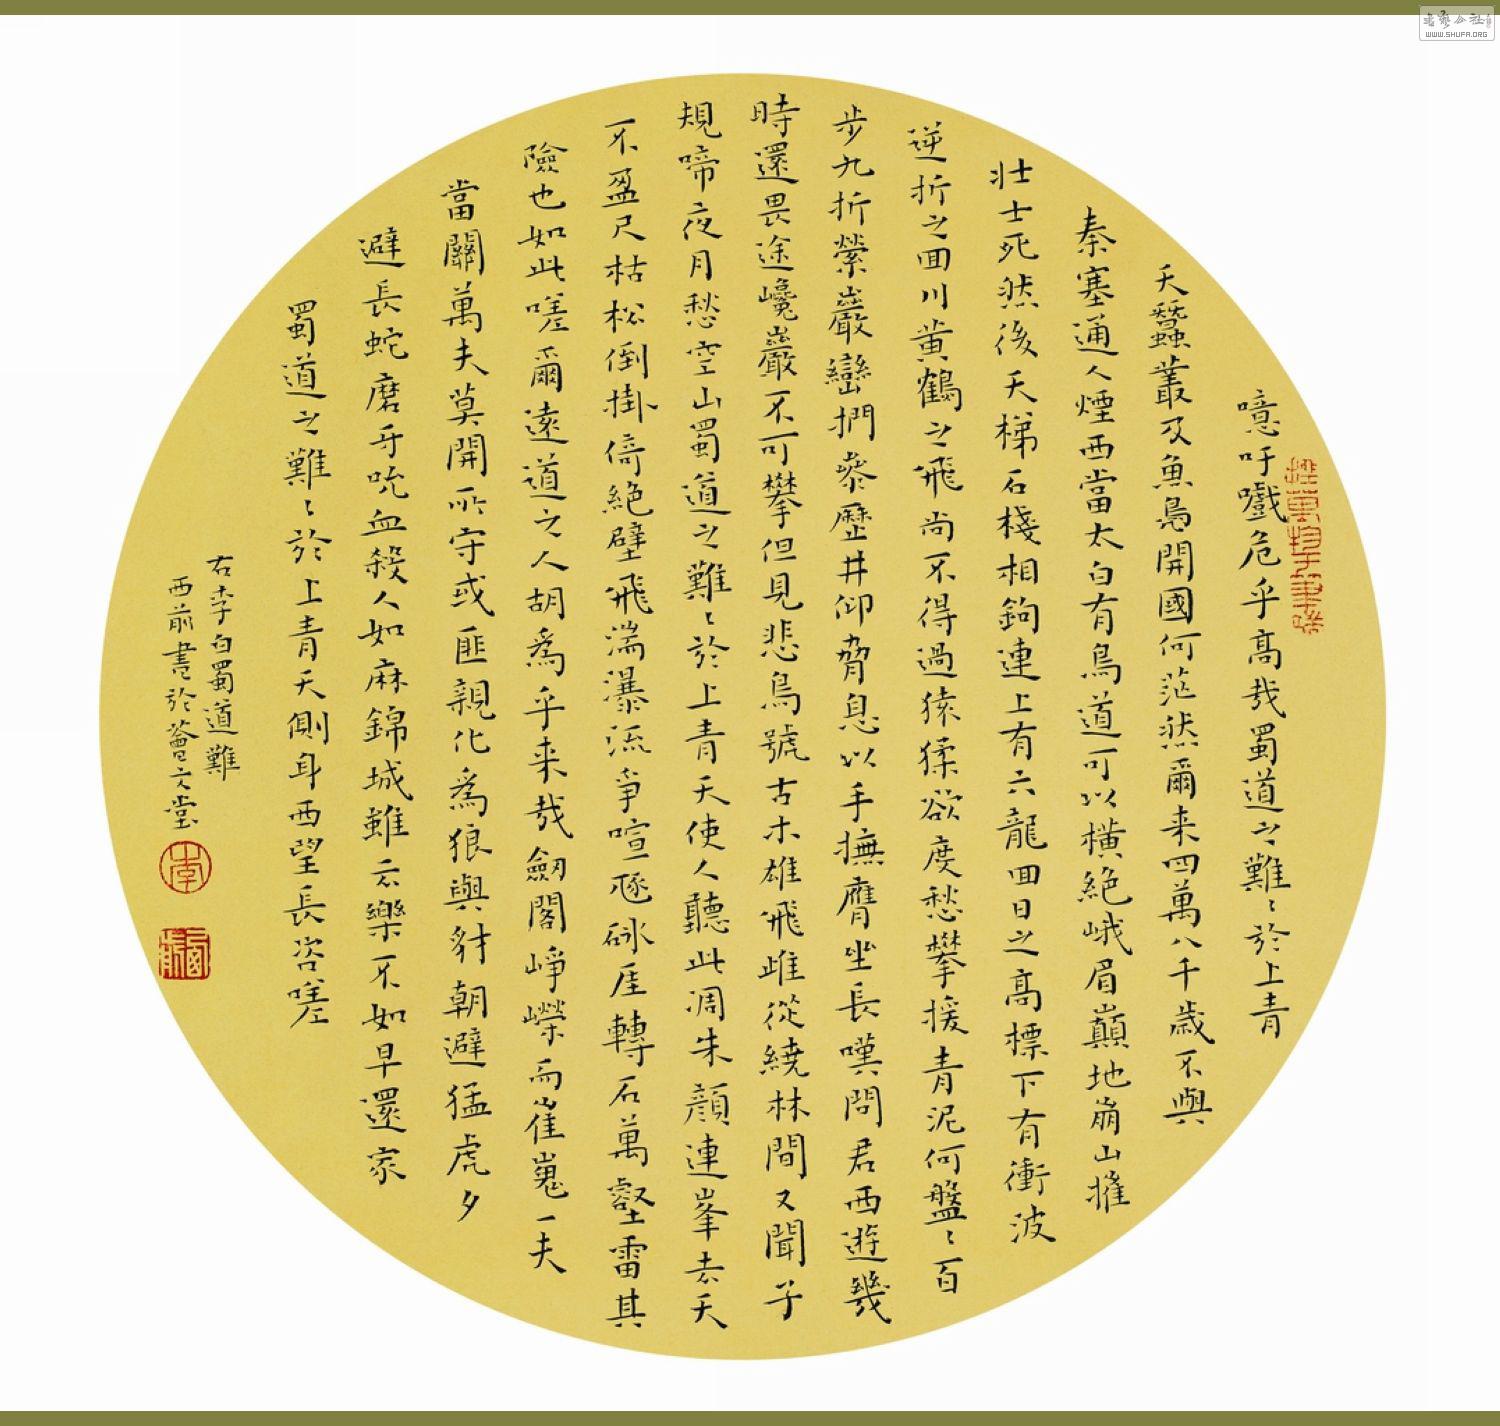 噫吁嚱危乎高哉蜀道之難〻於上青
天蠶叢及魚鳧開國何茫然爾来四萬八千歲不與
秦塞通人煙西當太白有鳥道可以橫絕峨眉巔地崩山摧
壯士死然後天梯石棧相鉤連上有六龍回日之高標下有衝波
逆折之回川黃鶴之飛尚不得過猿猱欲度愁攀援青泥何盤〻百
步九折縈巖巒捫參歷井仰脅息以手撫膺坐長嘆問君西遊幾
時還畏途巉巖不可攀但見悲鳥號古木雄飛雌從繞林間又聞子
規啼夜月愁空山蜀道之難〻於上青天使人聽此凋朱顏連峯去天
不盈尺枯松倒掛倚絕壁飛湍瀑流爭喧豗砯厓轉石萬壑雷其
險也如此嗟爾遠道之人胡為乎来哉劒閣崢嶸而崔嵬一夫
當關萬夫莫開所守或匪親化為狼與豺朝避猛虎夕
避長蛇磨牙吮血殺人如麻錦城雖云樂不如早還家
蜀道之難〻於上青天側身西望長咨嗟
右李白蜀道難
西前書於薈文堂
李
书艺公社
WWW.SHUFA.ORG